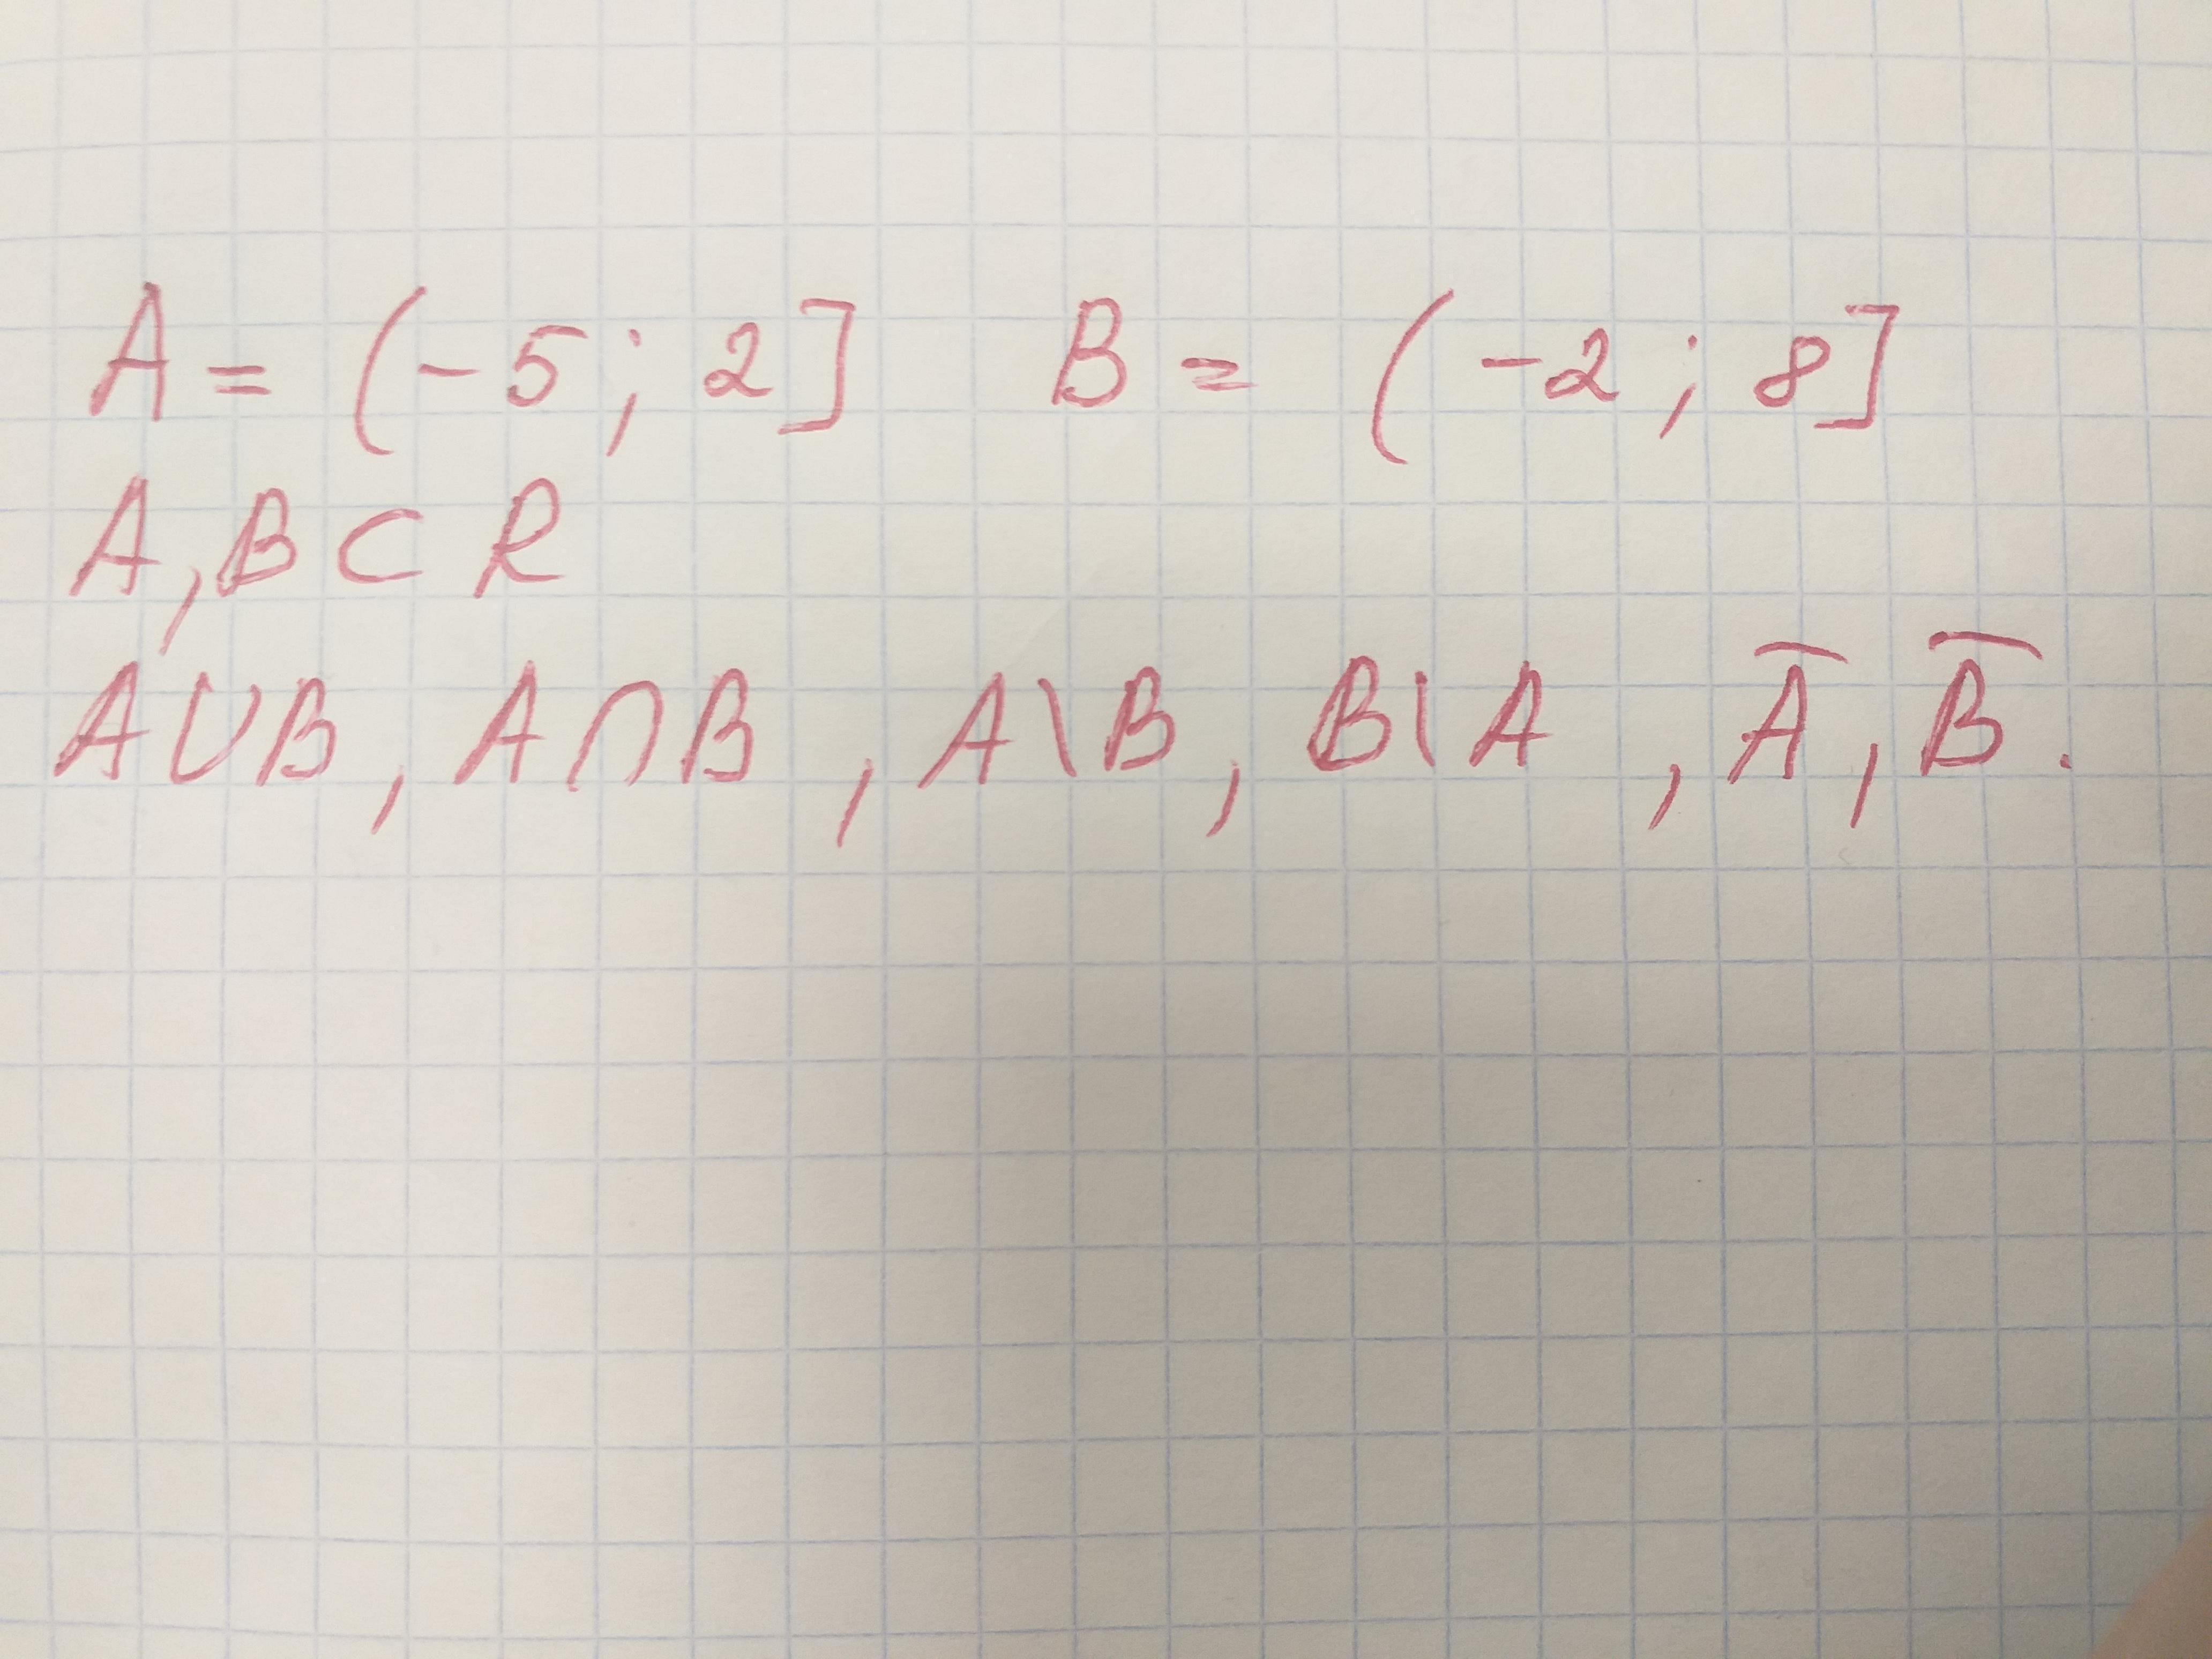 A = (-5; 2] B = (-2; 8]
A, B ⊂ R
A∪B, A∩B, A\B, B\A, A̅, B̅.